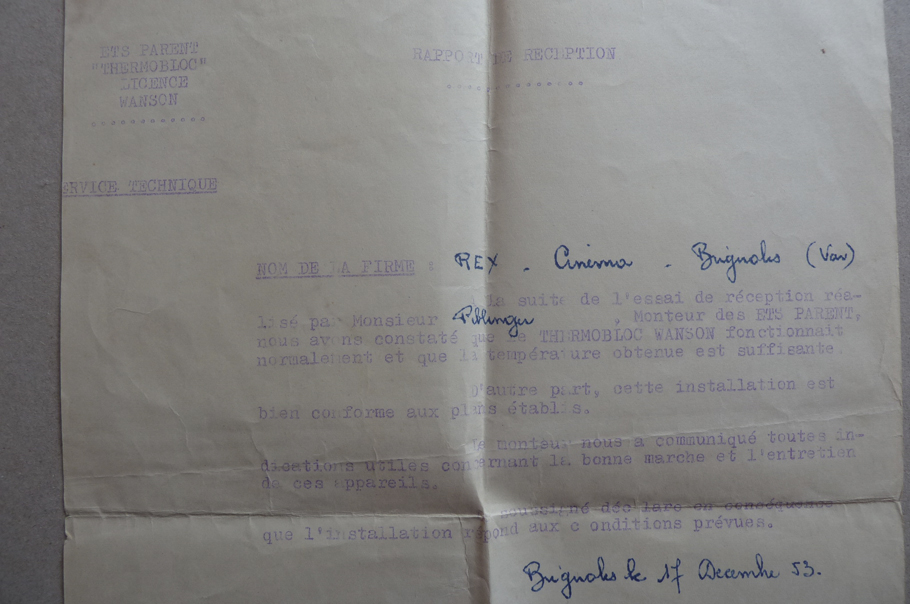 ETS PARENT
"THERMOBLOC"
LICENCE
WANSON
RAPPORT DE RECEPTION
ERVICE TECHNIQUE
NOM DE LA FIRME : REX - Cinéma - Brignoles (Var)
la suite de l'essai de réception réa-
lisé par Monsieur , Monteur des ETS PARENT,
nous avons constaté que le THERMOBLOC WANSON fonctionnait
normalement et que la température obtenue est suffisante.
D'autre part, cette installation est
bien conforme aux plans établis.
Le monteur nous a communiqué toutes in-
dications utiles concernant la bonne marche et l'entretien
de ces appareils.
soussigné déclare en conséquence
que l'installation répond aux c onditions prévues.
Brignoles le 17 Decembre 53.